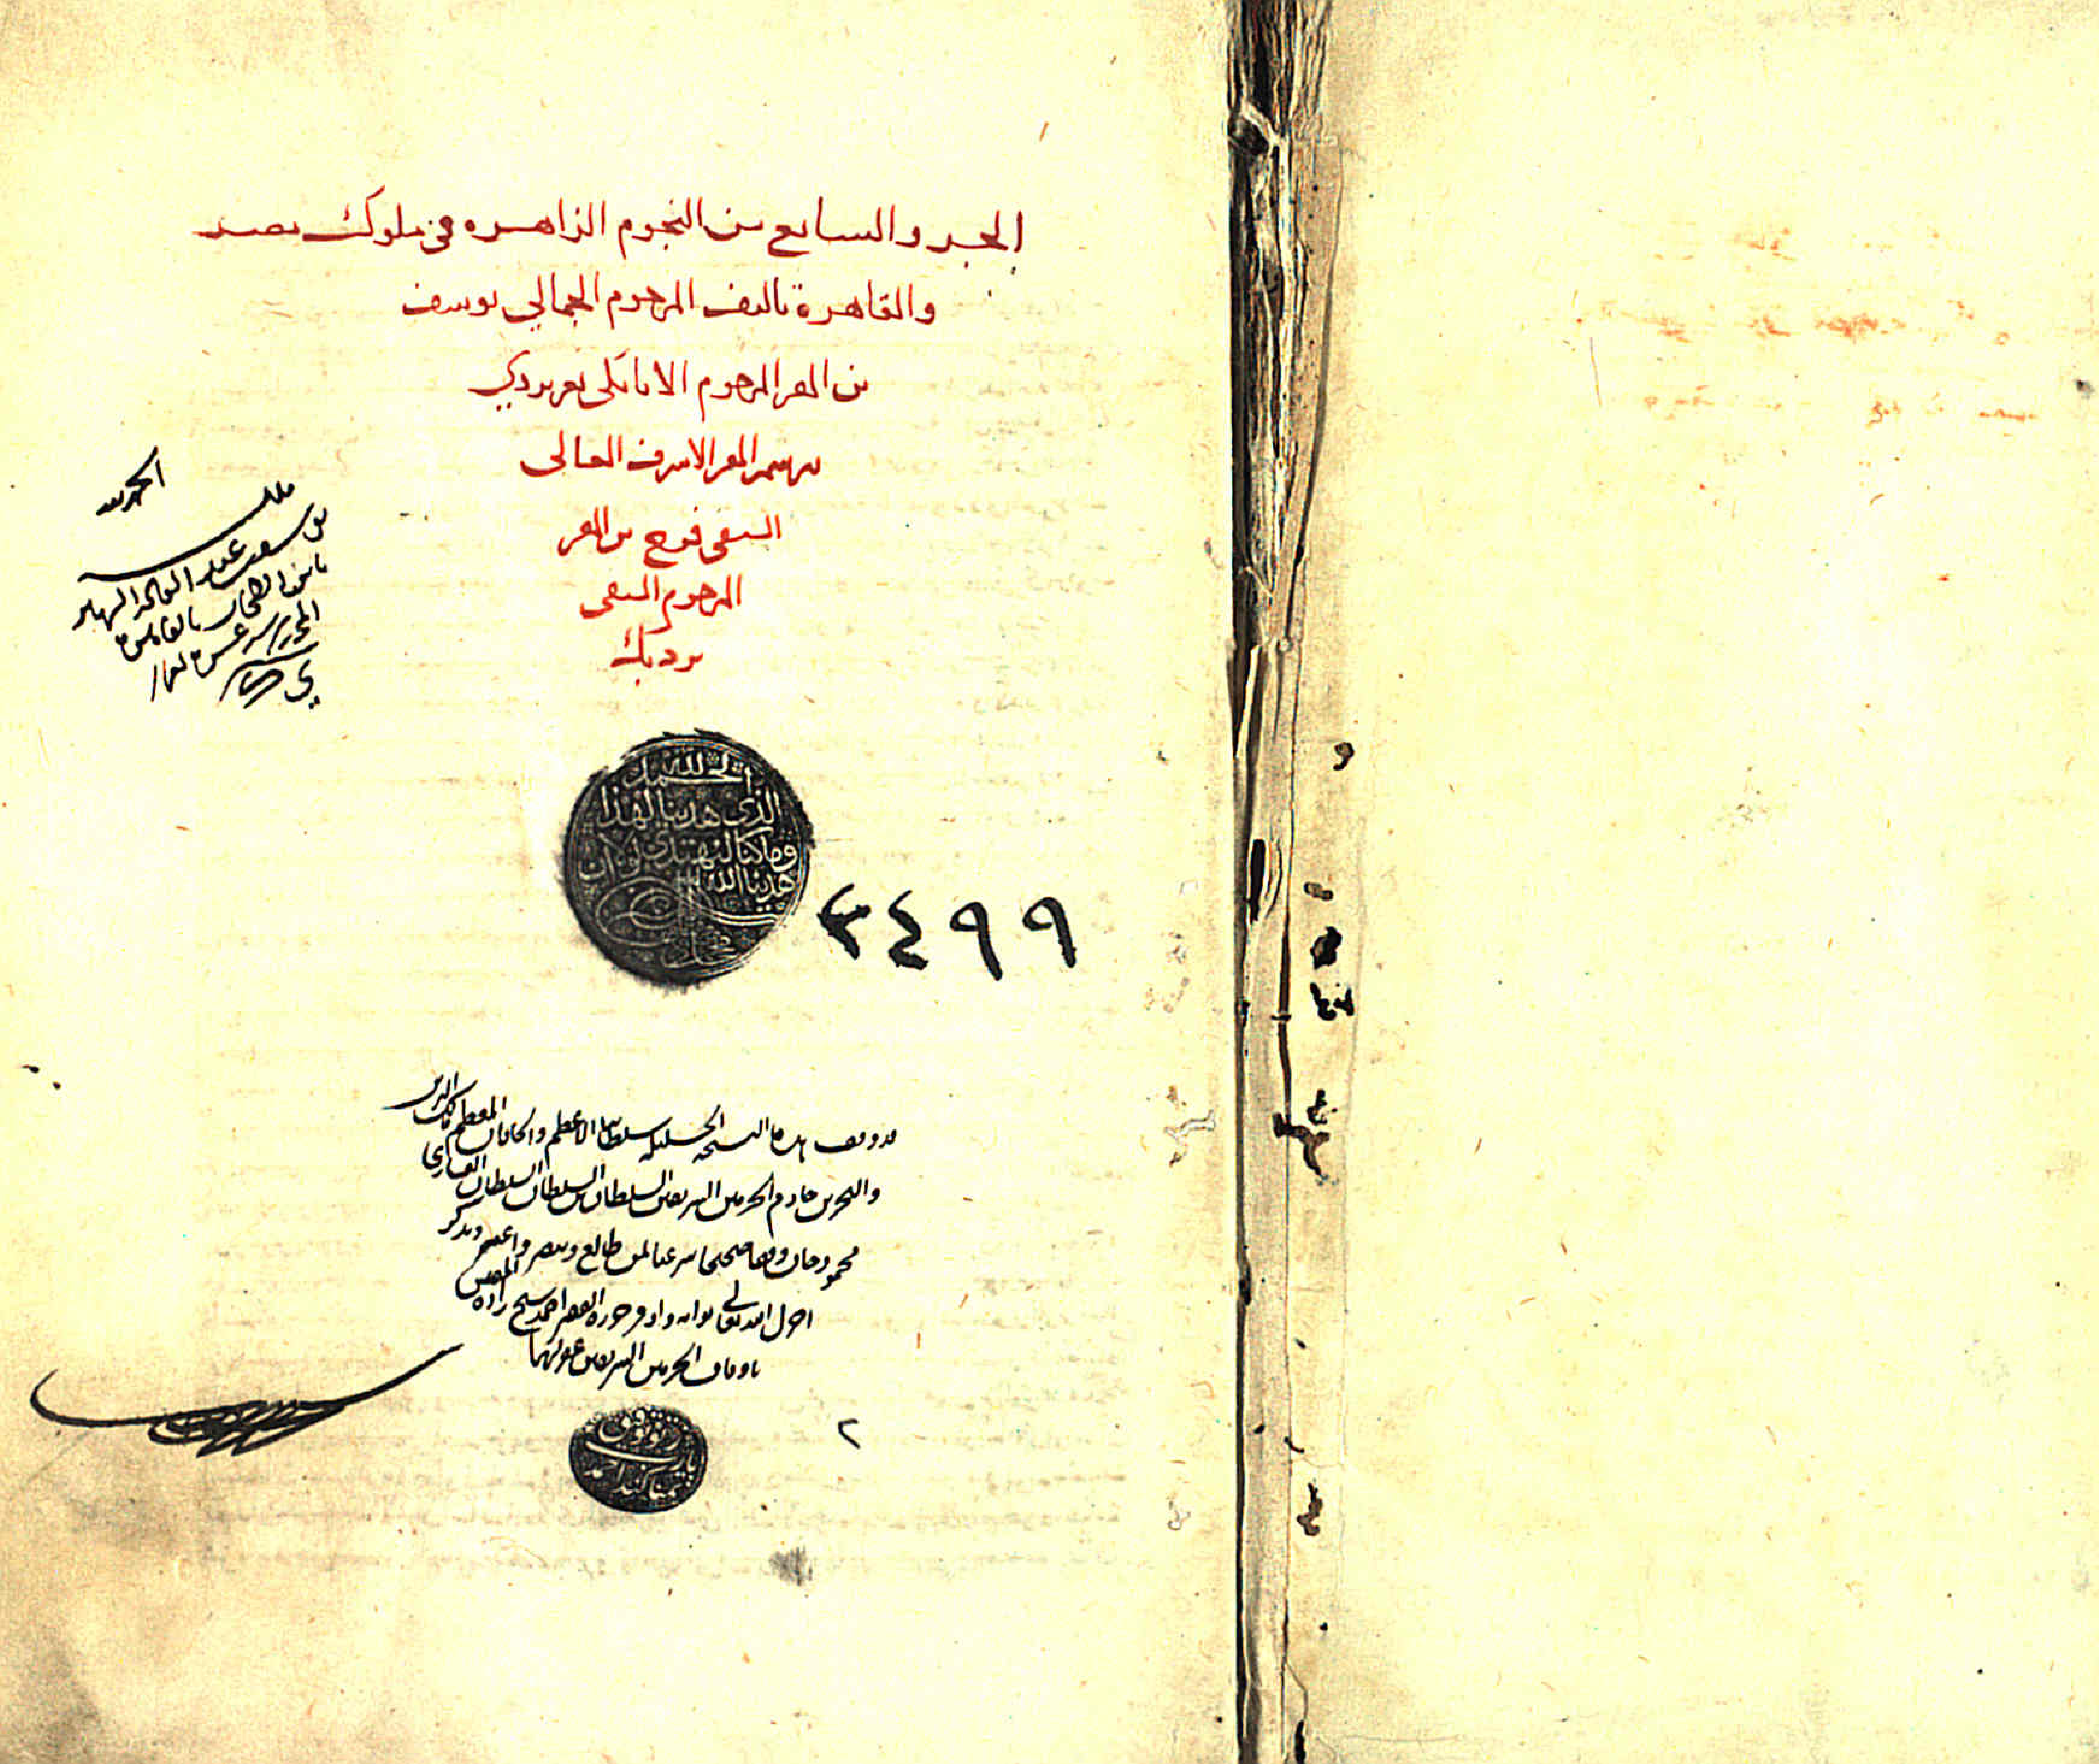 الجزو السابع من النجوم الزاهره في ملوك مصر
والقاهرة تاليف المرحوم الجمالي يوسف
بن المقر المرحوم الاتابكي تغربردي
برسم المقر الاشرف العالى
السيفى فرج بن المقر
المرحوم السيفى
بردبك
الحمد لله
ملك
الحمد لله
الذى هدينا لهذا
وما كنا لنهتدي لولا ان
هدينا الله
٣٤٩٩
قد وقف هذه النسخة الجليلة سلطاننا الاعظم والخاقان المعظم مالك البرين
والبحرين خادم الحرمين الشريفين السلطان بن السلطان السلطان الغازي
محمود خان وقفا صحيحا شرعيا لمن طالع وتبصر واعتبر وتذكر
اجزل الله تعالى ثوابه واوفر حرره الفقير احمد شيخ زاده المفتش
باوقاف الحرمين الشريفين غفر لهما
٢